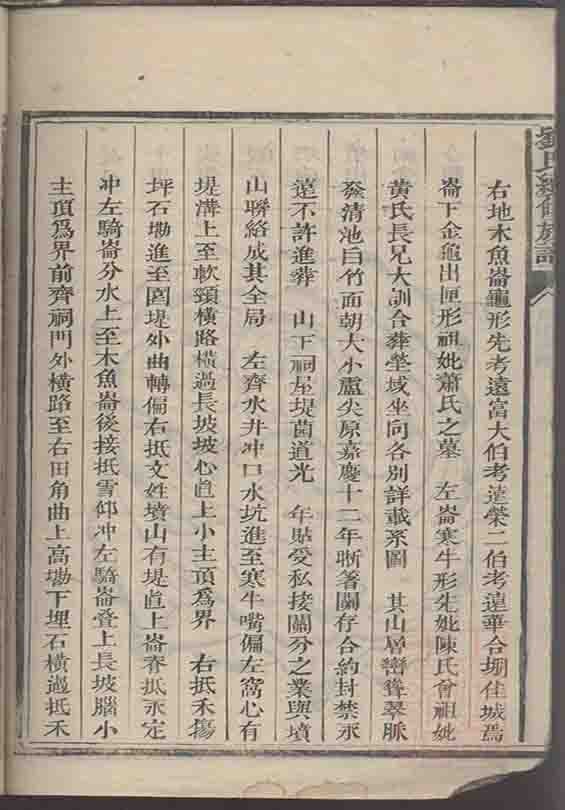 右地木魚崙龜形先考遠富大伯考遠榮二伯考遠華合塴佳城焉
崙下金龜出匣形祖妣蕭氏之墓 左崙寒牛形先妣陳氏曾祖妣
黃氏長兄大訓合葬塋域坐向各別詳載系圖 其山層巒聳翠脈
發清池白竹面朝大小盧尖原嘉慶十二年晰箸鬮存合約封禁永
遠不許進葬 山下祠屋堤茵道光 年貼受私接鬮分之業與墳
山聯絡成其全局 左齊水井冲口水坑進至寒牛嘴偏左窩心有
堤溝上至軟頸橫路橫過長坡坡心直上小主頂爲界 右抵禾塲
坪石墈進至圍堤外曲轉偏右抵文姓墳山有堤直上崙脊抵永定
冲左騎崙分水上至木魚崙後接抵雪仰冲左騎崙叠上長坡腦小
主頂爲界前齊祠門外橫路至右田角曲上高墈下埋石橫過抵禾
氏 修族譜